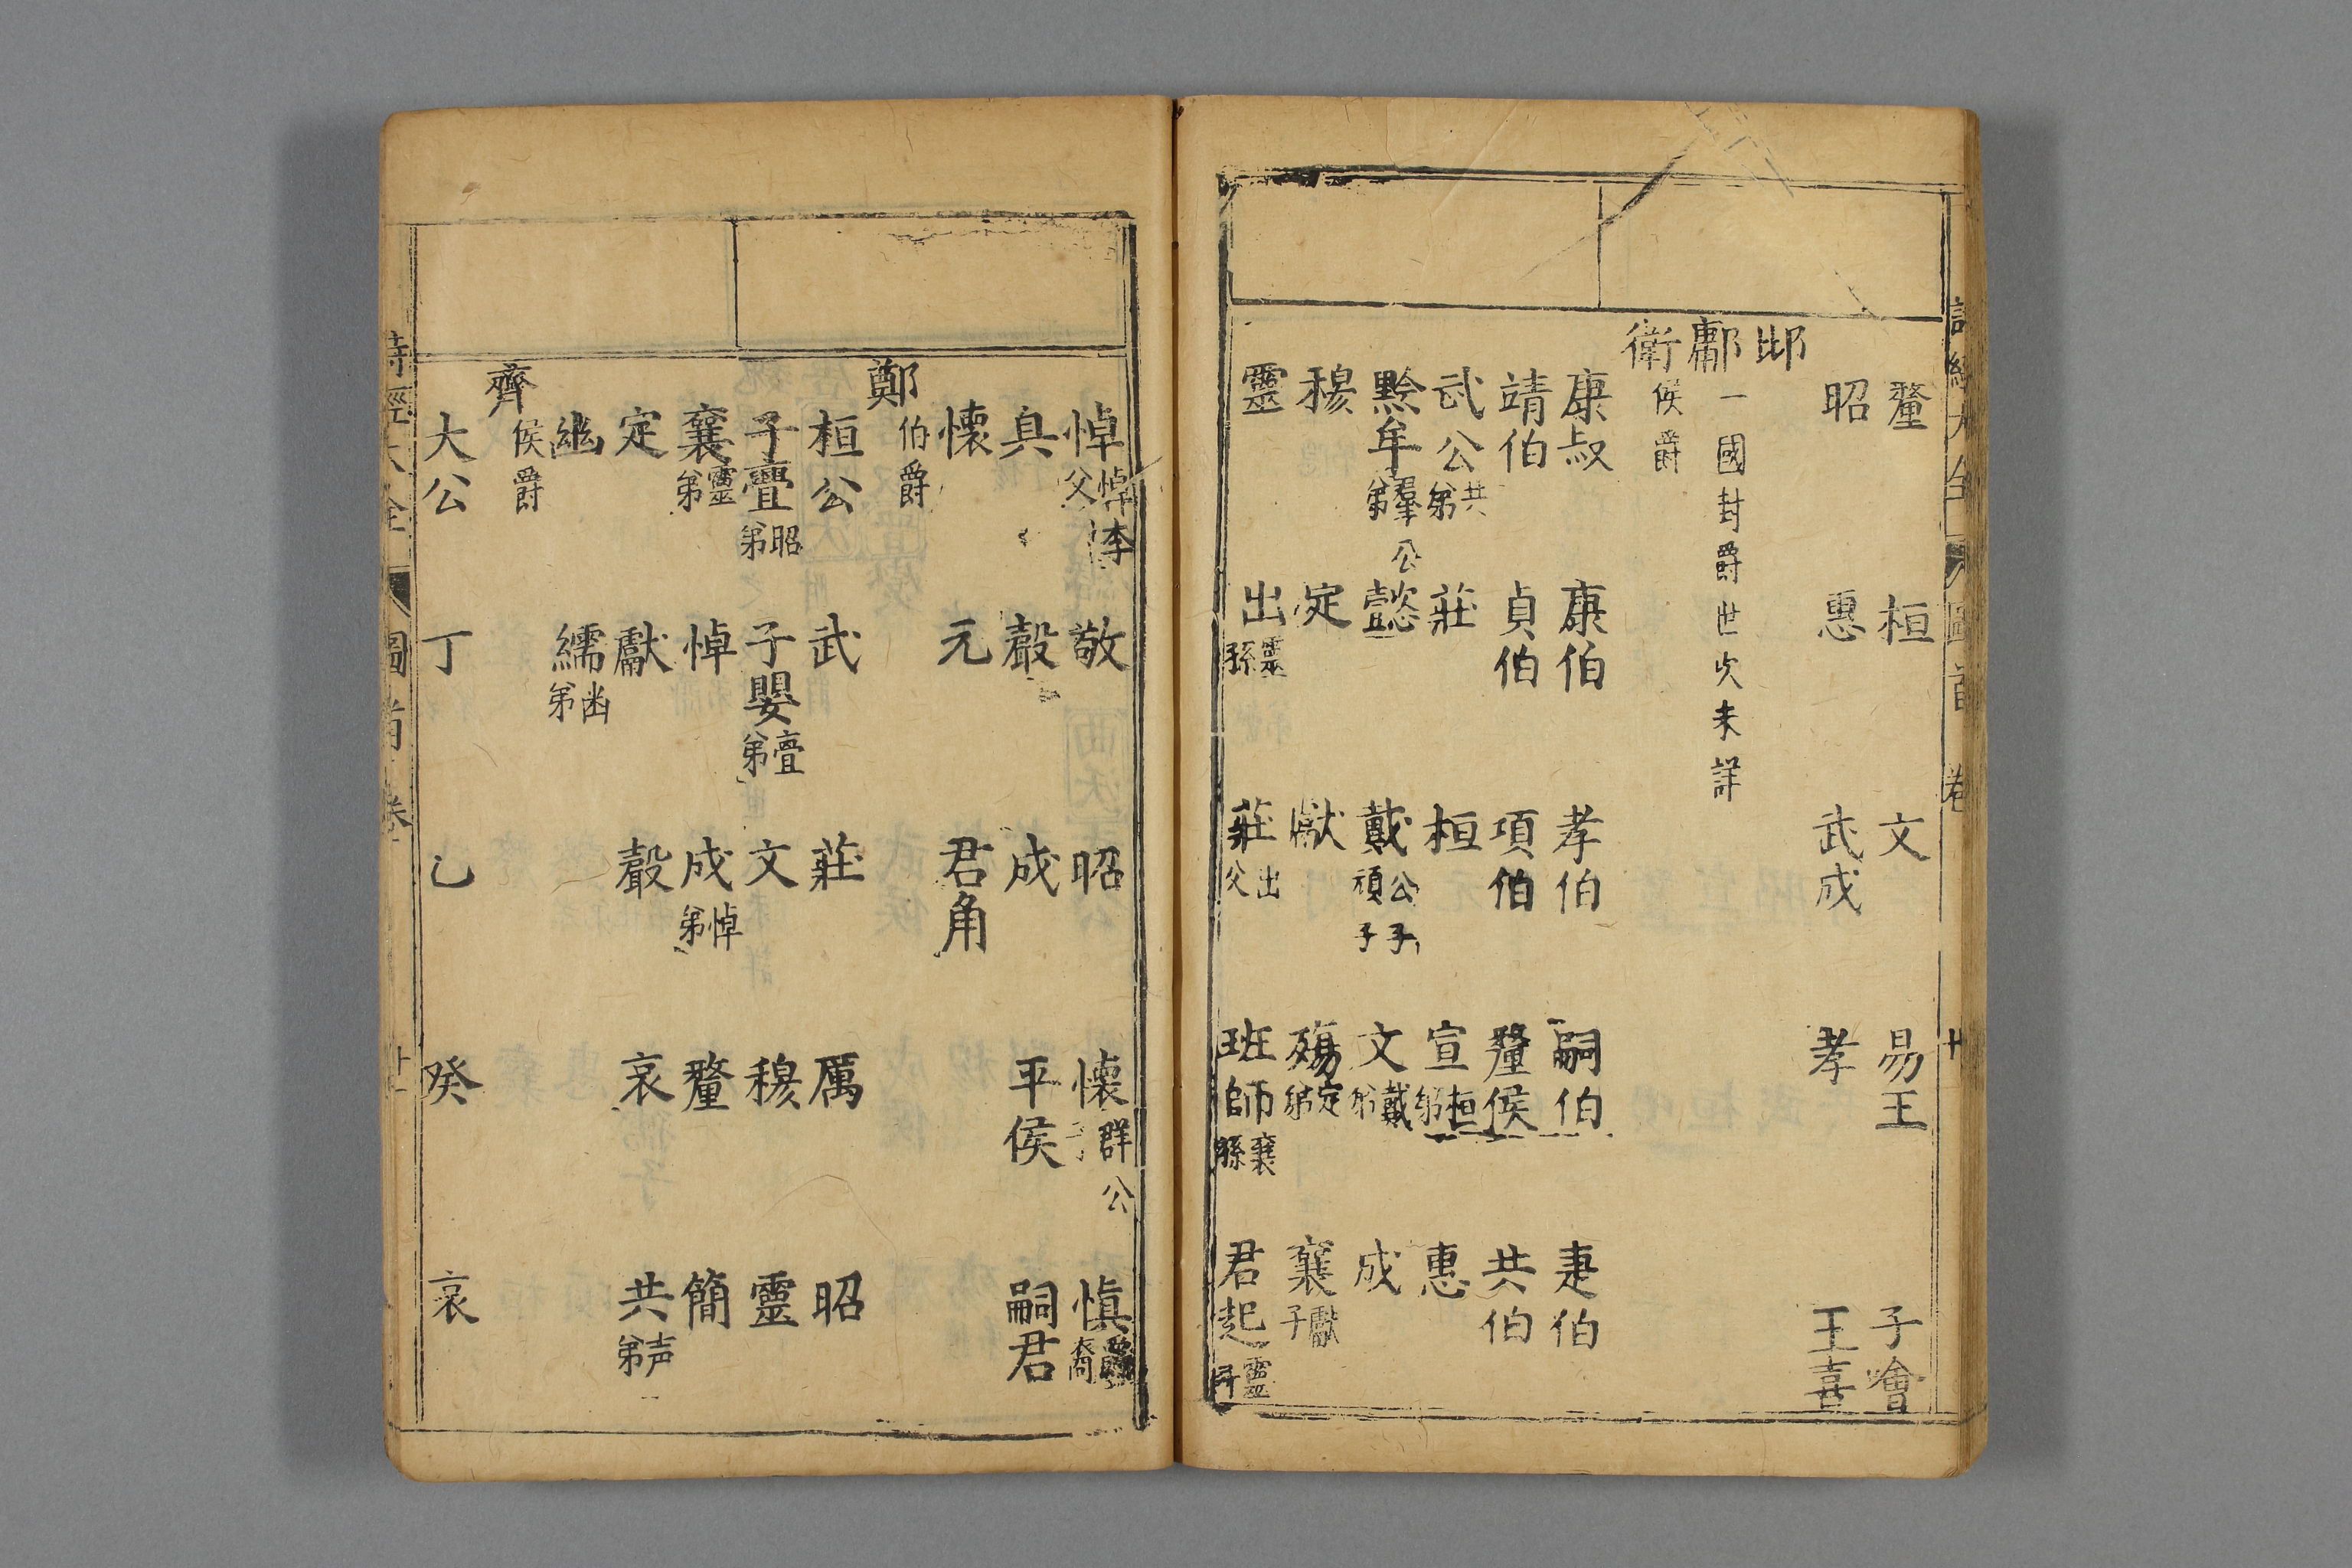 釐 桓 文 易王 子噲
昭 惠 武成 孝 王喜
邶
鄘 一國封爵世次未詳
衛 侯爵
康叔 康伯 孝伯 嗣伯 疌伯
靖伯 貞伯 頃伯 釐侯 共伯
武公共弟 莊 桓 宣桓弟 惠
黔牟羣公弟 懿 戴公子頑子 文戴弟 成
穆 定 獻 殤定弟 襄獻子
靈 出靈孫 莊出父 班師襄孫 君起靈子
悼悼父季 敬 昭 懷群公子 慎裔
具 聲 成 平侯 嗣君
懷 元 君角
鄭 伯爵
桓公 武 莊 厲 昭
子亹昭弟 子嬰亹弟 文 穆 靈
襄靈弟 悼 成悼弟 釐 簡
定 獻 聲 哀 共声弟
幽 繻幽弟
齊 侯爵
大公 丁 乙 癸 哀
詩經大全 圖首 卷 十一